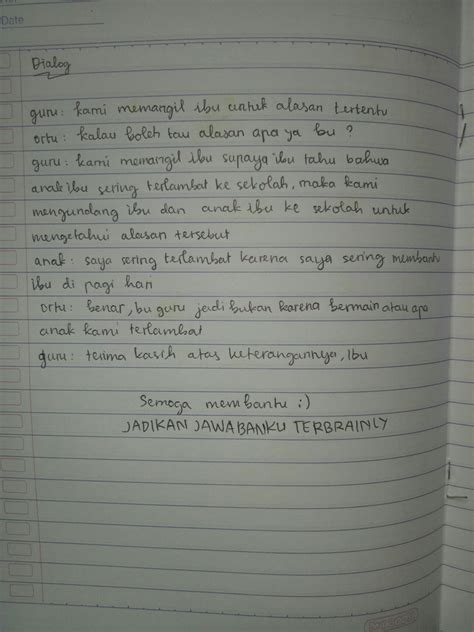 /Date
Dialog
guru: kami memangil ibu untuk alasan tertentu
ortu: kalau boleh tau alasan apa ya bu ?
guru: kami memangil ibu supaya ibu tahu bahwa
anak ibu sering terlambat ke sekolah, maka kami
mengundang ibu dan anak ibu ke sekolah untuk
mengetahui alasan tersebut
anak: saya sering terlambat karena saya sering membantu
ibu di pagi hari
ortu: benar, bu guru jadi bukan karena bermain atau apa
anak kami terlambat
guru: terima kasih atas keterangannya, Ibu
Semoga membantu :)
JADIKAN JAWABANKU TERBRAINLY